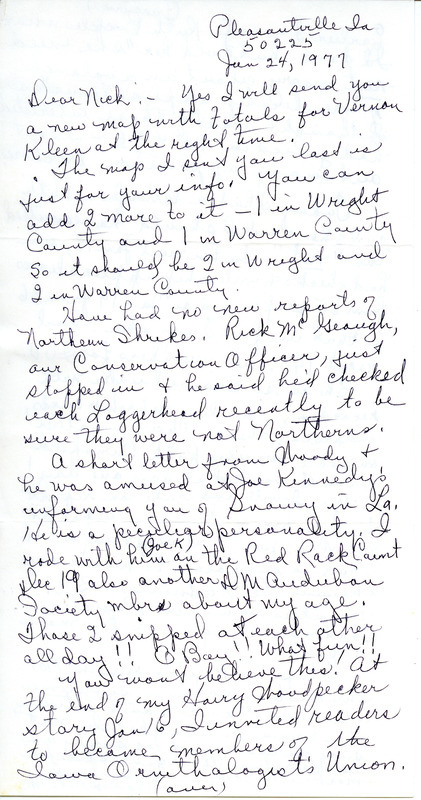 Pleasantville Ia
50225
Jan 24, 1977
Dear Nick :- Yes I will send you
a new map with totals for Vernon
Kleen at the right time.
The map I sent you last is
just for your info. You can
add 2 more to it - 1 in Wright
County and 1 in Warren County
So it should be 2 in Wright and
2 in Warren County.
Have had no new reports of
Northern Shrikes. Rick McGeough,
our Conservation Officer, just
stopped in & he said he'd checked
each Loggerhead recently to be
sure they were not Northerns.
A short letter from Woody &
he was amused at Joe Kennedy's
informing you of Snowy in Ia.
He is a peculiar personality. I
rode with him (Jack) on the Red Rock Count
Dec 19 also another DM Audubon
Society mbr about my age.
Those 2 snipped at each other
all day!! O Boy!! What fun!!
You won't believe this! At
the end of my Hairy Woodpecker
story Jan 16, I invited readers
to become members of the
Iowa Ornithologists Union.
(over)